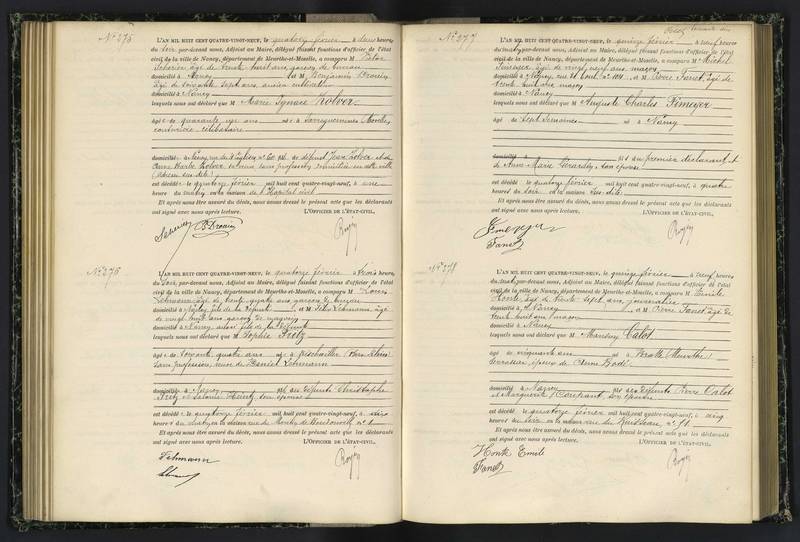 N° 275
L'AN MIL HUIT CENT QUATRE-VINGT-NEUF, le quatorze février à deux heures
du soir par-devant nous, Adjoint au Maire, délégué faisant fonctions d'officier de l'état
civil de la ville de Nancy, département de Meurthe-et-Moselle, a comparu M
âgé de trente huit ans garçon de bureau
domicilié à Nancy et M Benjamin Drouin
âgé de soixante sept ans ancien cultivateur
domicilié à Nancy
lesquels nous ont déclaré que M Marie Ignace Kolver
âgé e de quarante un ans né e à Sarreguemines Moselle
couturière célibataire
domicilié e à Nancy rue de l'Eglise n° 60 fille de défunt Jean Kolver et de
Anne Barbe sans profession domiciliée en cette ville
est décédé e le quatorze février mil huit cent quatre-vingt-neuf, à une
heure du matin en la maison de l'Hopital civil
Et après nous être assuré du décès, nous avons dressé le présent acte que les déclarants
ont signé avec nous après lecture. L'OFFICIER DE L'ÉTAT-CIVIL,
B Drouin
N° 276
L'AN MIL HUIT CENT QUATRE-VINGT-NEUF, le quatorze février à trois heures
du soir, par-devant nous, Adjoint au Maire, délégué faisant fonctions d'officier de l'état
civil de la ville de Nancy, département de Meurthe-et-Moselle, a comparu M Louis
Lehmann âgé de trente quatre ans garçon de bureau
domicilié à Nancy fils de la défunte et M Felix Lehmann âgé
de vingt huit ans garçon de magasin
domicilié à Nancy aussi fils de la défunte
lesquels nous ont déclaré que M Sophie Fretz
âgé e de soixante quatre ans né e à Bischwiller (Bas-Rhin)
sans profession, veuve de Daniel Lehmann
domicilié e à Nancy fille des défunts Christophe
Fretz et Salomé son épouse
est décédé e le quatorze février mil huit cent quatre-vingt-neuf, à
heures du matin en la maison rue du n° 1
Et après nous être assuré du décès, nous avons dressé le présent acte que les déclarants
ont signé avec nous après lecture. L'OFFICIER DE L'ÉTAT-CIVIL,
Lehmann
N° 277
L'AN MIL HUIT CENT QUATRE-VINGT-NEUF, le quinze février à neuf heures
du matin par-devant nous, Adjoint au Maire, délégué faisant fonctions d'officier de l'état
civil de la ville de Nancy, département de Meurthe-et-Moselle, a comparu M Michel
âgé de vingt neuf ans maçon
domicilié à Nancy, et M Pierre Fanet, âgé de
trente huit ans maçon
domicilié à Nancy
lesquels nous ont déclaré que M Auguste Charles Fimeyer
âgé de sept semaines né à Nancy
domicilié à fils du premier déclarant et
de Anne Marie son épouse
est décédé le quatorze février mil huit cent quatre-vingt-neuf, à quatre
heures du soir en la maison
Et après nous être assuré du décès, nous avons dressé le présent acte que les déclarants
ont signé avec nous après lecture. L'OFFICIER DE L'ÉTAT-CIVIL,
Fimeyer
Fanet
N° 278
L'AN MIL HUIT CENT QUATRE-VINGT-NEUF, le quinze février à neuf heures
du matin par-devant nous, Adjoint au Maire, délégué faisant fonctions d'officier de l'état
civil de la ville de Nancy, département de Meurthe-et-Moselle, a comparu M Emile
âgé de trente sept ans, journalier
domicilié à Nancy et M Pierre Fanet âgé de
trente huit ans maçon
domicilié à Nancy
lesquels nous ont déclaré que M Mansuy Calot
âgé de cinquante ans né à (Meurthe)
terrassier époux de Anne
domicilié à Nancy fils des défunts Pierre Calot
et Marguerite son épouse
est décédé le quatorze février mil huit cent quatre-vingt-neuf, à cinq
heures du soir en la maison rue du Ruisseau, n°
Et après nous être assuré du décès, nous avons dressé le présent acte que les déclarants
ont signé avec nous après lecture. L'OFFICIER DE L'ÉTAT-CIVIL,
Emile
Fanet